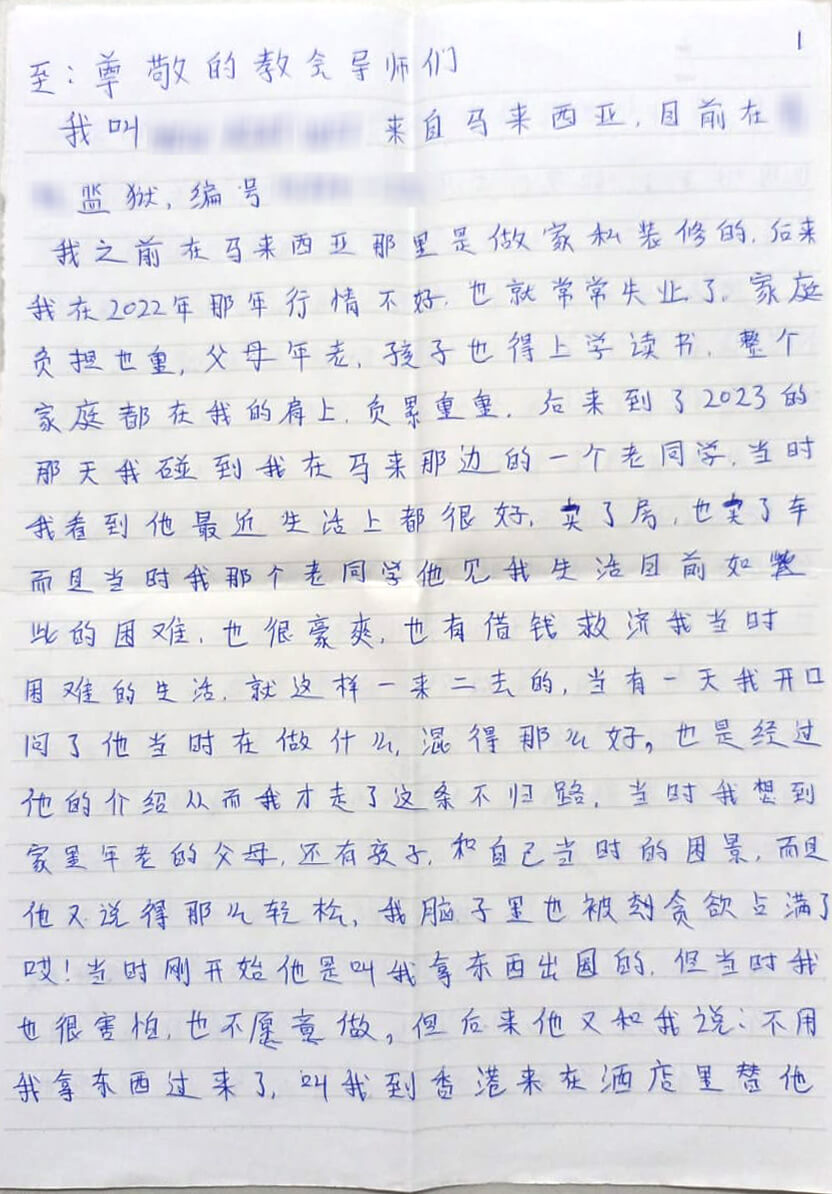 1
至：尊敬的教会导师们
我叫 来自马来西亚，目前在
监狱，编号
我之前在马来西亚那里是做家私装修的，后来
我在2022年那年行情不好，也就常常失业了，家庭
负担也重，父母年老，孩子也得上学读书，整个
家庭都在我的肩上，负累重重，后来到了2023的
那天我碰到我在马来那边的一个老同学，当时
我看到他最近生活上都很好，卖了房，也卖了车
而且当时我那个老同学他见我生活目前如
此的困难，也很豪爽，也有借钱救济我当时
困难的生活，就这样一来二去的，当有一天我开口
问了他当时在做什么，混得那么好，也是经过
他的介绍从而我才走了这条不归路，当时我想到
家里年老的父母，还有孩子，和自己当时的困景，而且
他又说得那么轻松，我脑子里也被刻贪欲占满了
哎！当时刚开始他是叫我拿东西出国的，但当时我
也很害怕，也不愿意做，但后来他又和我说：不用
我拿东西过来了，叫我到香港来在酒店里替他